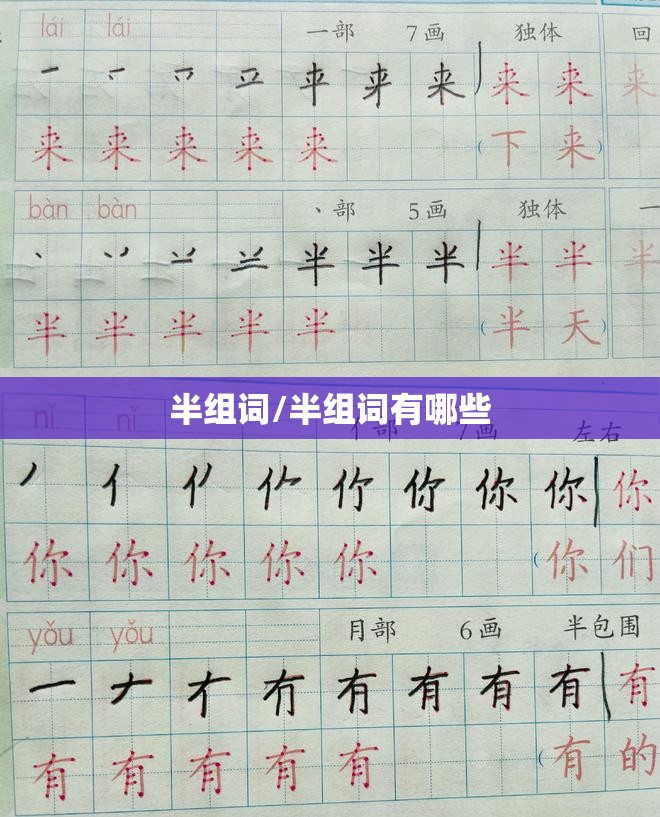 lái lái 一部 7画 独体 回
一 来 来 来 来 来
来 来 来 来 来 (下 来)
bàn bàn 丶部 5画 独体 一
丶 半 半 半 半 半 半
半 半 半 半 半 (半 天)
半组词/半组词有哪些
nǐ nǐ 亻部 7画 左右
丿 亻 你 你 你 你
你 你 你 你 你 (你 们
yǒu yǒu 月部 6画 半包围
一 ナ 冇 有 有 有 有 有
有 有 有 有 有 (有 的